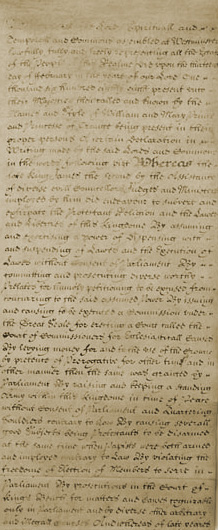 Lords Spirituall and
Temporall and Commons assembled at Westminster
lawfully fully and freely representing all the Estates
of the People of this Realme did upon the thirteenth
day of February in the yeare of our Lord One
thousand six hundred eighty eight present unto
their Majesties then called and known by the
Names and Stile of William and Mary Prince
and Princesse of Orange being present in their
proper persons a certaine Declaration in
Writeing made by the said Lords and Commons
in the words following viz Whereas the
late King James the Second by the Assistance
of diverse evill Councellors Judges and Ministers
imployed by him did endeavour to subvert and
extirpate the Protestant Religion and the Lawes
and Liberties of this Kingdome By assuming
and exercising a power of Dispensing with
and suspending of Lawes and the Execution of
Lawes without Consent of Parliament By
committing and prosecuting diverse worthy
Prelates for humbly petitioning to be excused from
concurring to the said assumed Power By issuing
and causing to be executed a Commission under
the Great Seale for erecting a Court called the
Court of Commissioners for Ecclesiasticall Causes
By levying money for and to the use of the Crowne
by pretence of Prerogative for other time and in
other manner then the same was granted by
Parliament By raising and keeping a standing
Army within this Kingdome in time of Peace
without Consent of Parliament and Quartering
Souldiers contrary to Law By causing severall
good Subjects being Protestants to be disarmed
at the same time when Papists were both armed
and imployed contrary to Law By violating the
freedome of Election of Members to serve in
Parliament By prosecutions in the Court of
Kings Bench for matters and causes cognizable
only in Parliament and by diverse other arbitrary
and illegall courses And whereas of late yeares